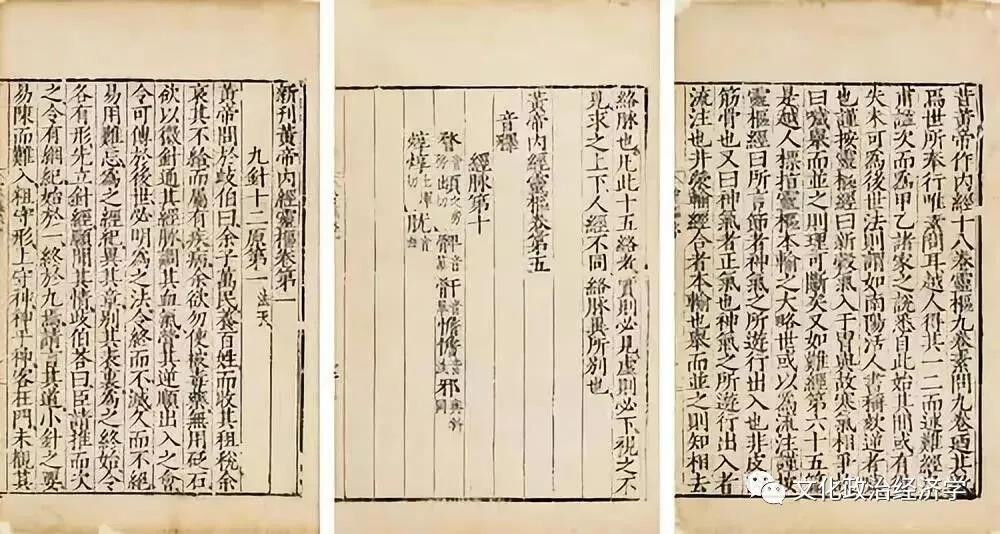 昔黃帝作內經十八卷靈樞九卷素問九卷迺其數
焉世所奉行唯素問耳越人得其一二而述難經
甫謐次而為甲乙諸家之說悉自此始其間或有得
失未可為後世法則謂如南陽活人書稱欬逆者
也謹按靈樞經曰新穀氣入于胃與故寒氣相爭
曰噦舉而並之則理可斷矣又如難經第六十五篇
是越人標指靈樞本輸之大略世或以為流注謹按
靈樞經曰所言節者神氣之所遊行出入也非皮
筋骨也又曰神氣者正氣也神氣之所遊行出入者
流注也井滎輸經合者本輸也舉而並之則知相去
絡脉也凡此十五絡者實則必見虛則必下視之不
見求之上下人經不同絡脉異所別也
黃帝內經靈樞卷第五
音釋
經脉第十
新刊黃帝內經靈樞卷第一
九針十二原第一 法天
黃帝問於歧伯曰余子萬民養百姓而收其租稅余
哀其不給而屬有疾病余欲勿使被毒藥無用砭石
欲以微針通其經脉調其血氣營其逆順出入之會
令可傳於後世必明為之法令終而不滅久而不絕
易用難忘為之經紀異其章別其表裏為之終始令
各有形先立針經願聞其情歧伯荅曰臣請推而次
之令有綱紀始於一終於九焉請言其道小針之要
易陳而難入粗守形上守神神乎神客在門未覩其
文化政治经济学